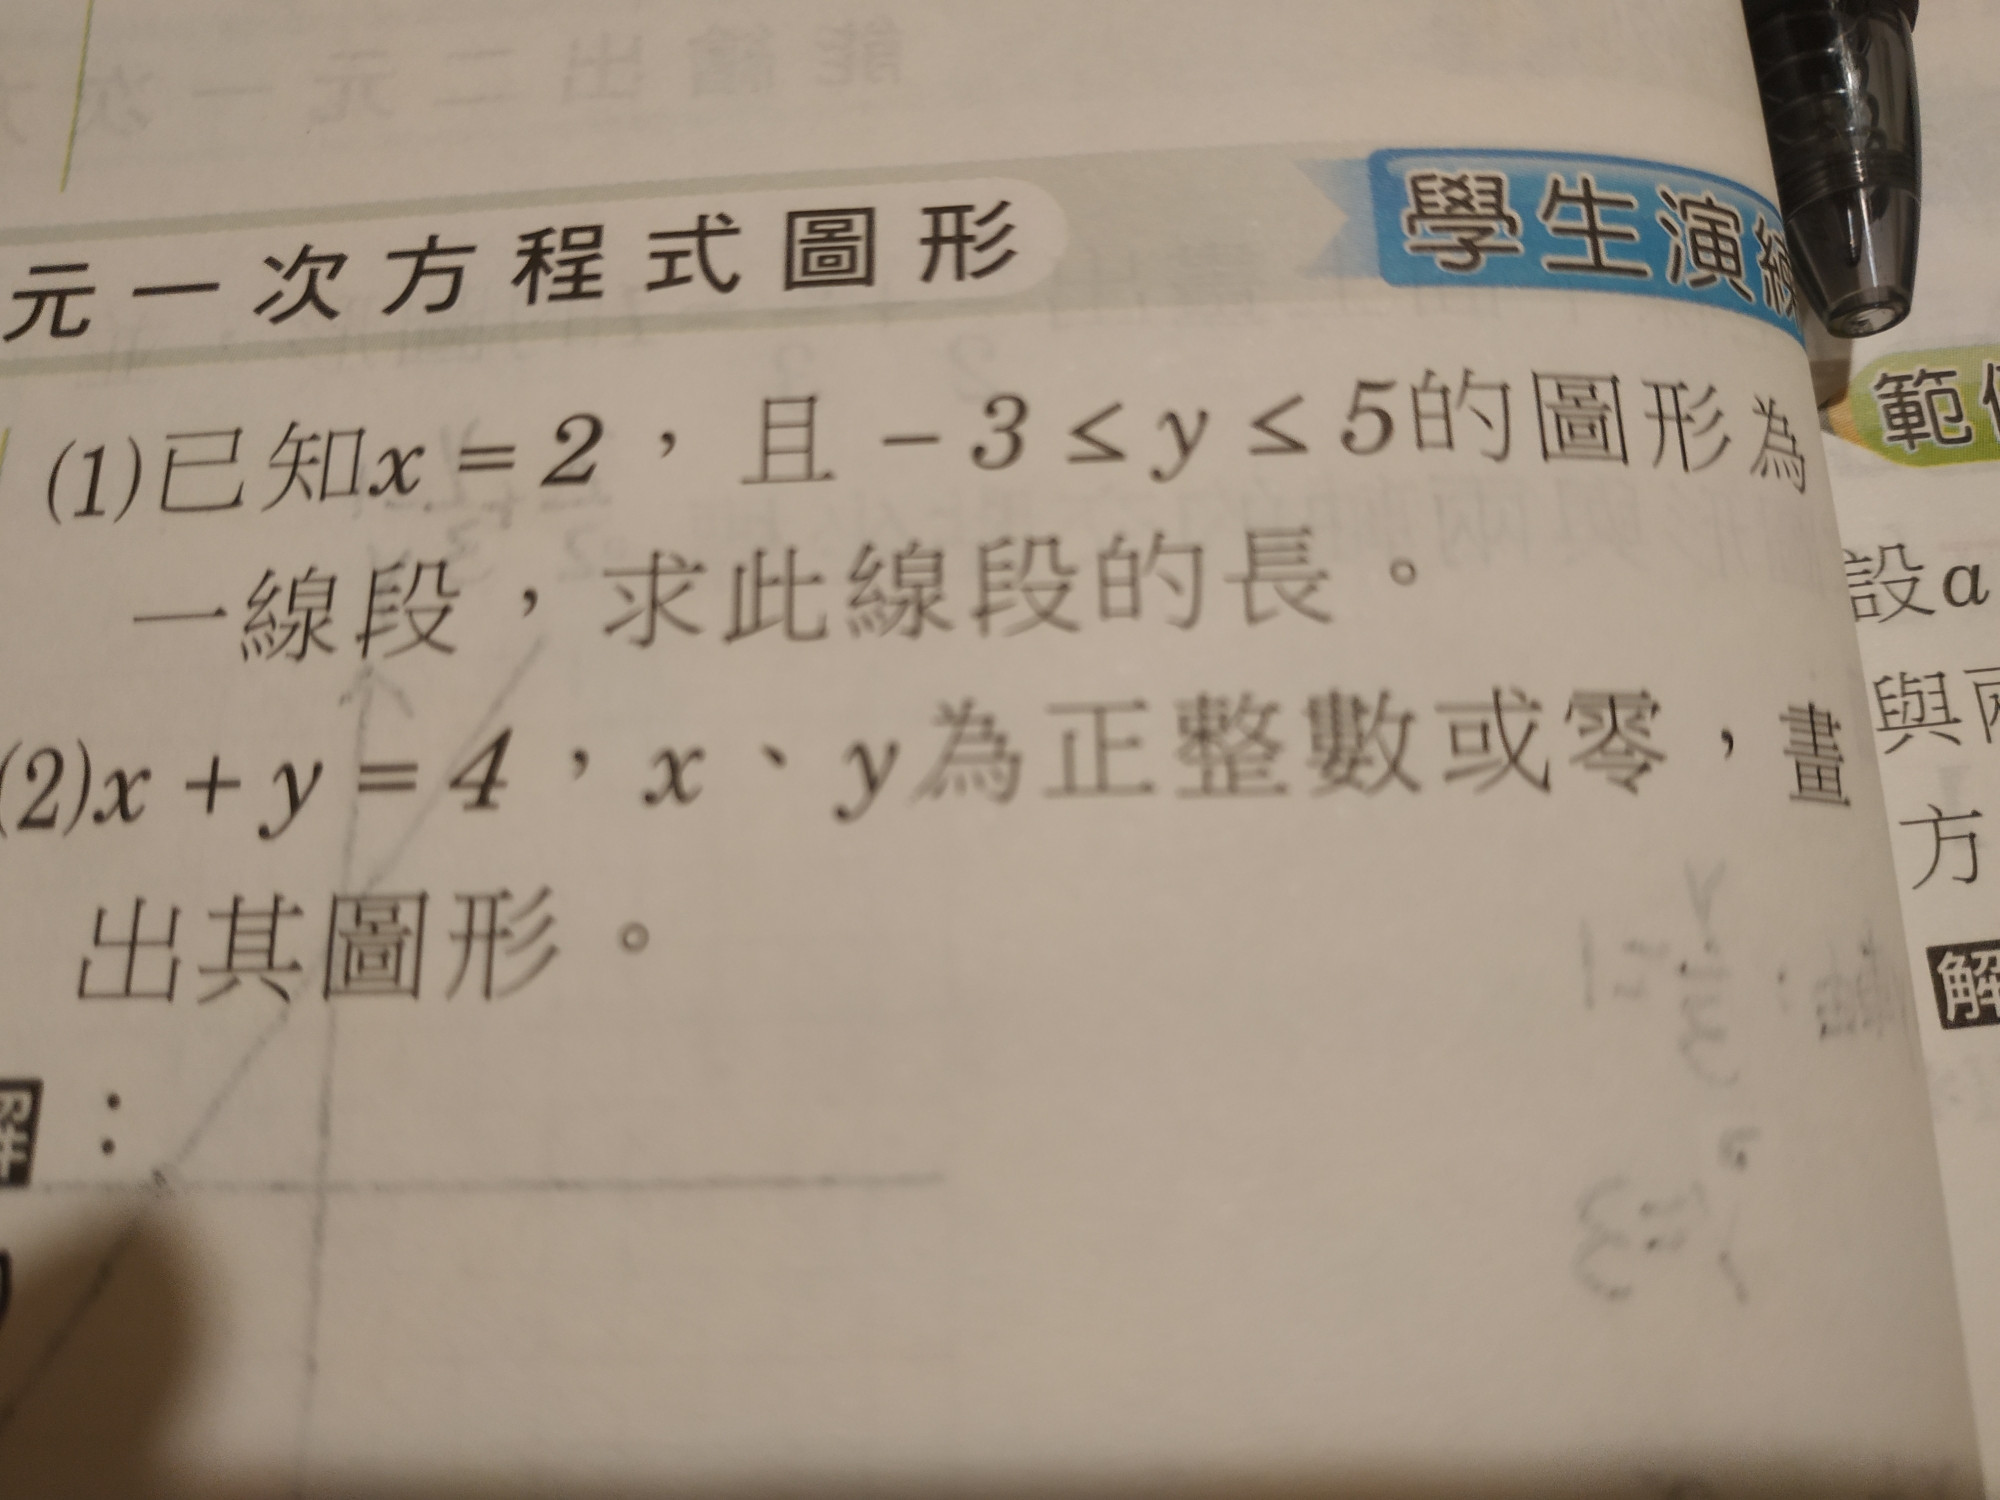 元一次方程式圖形
學生演練
(1)已知x = 2，且 − 3 ≤ y ≤ 5的圖形為
一線段，求此線段的長。
(2)x + y = 4，x、y為正整數或零，畫
出其圖形。
解：
範
設a
與
方
解